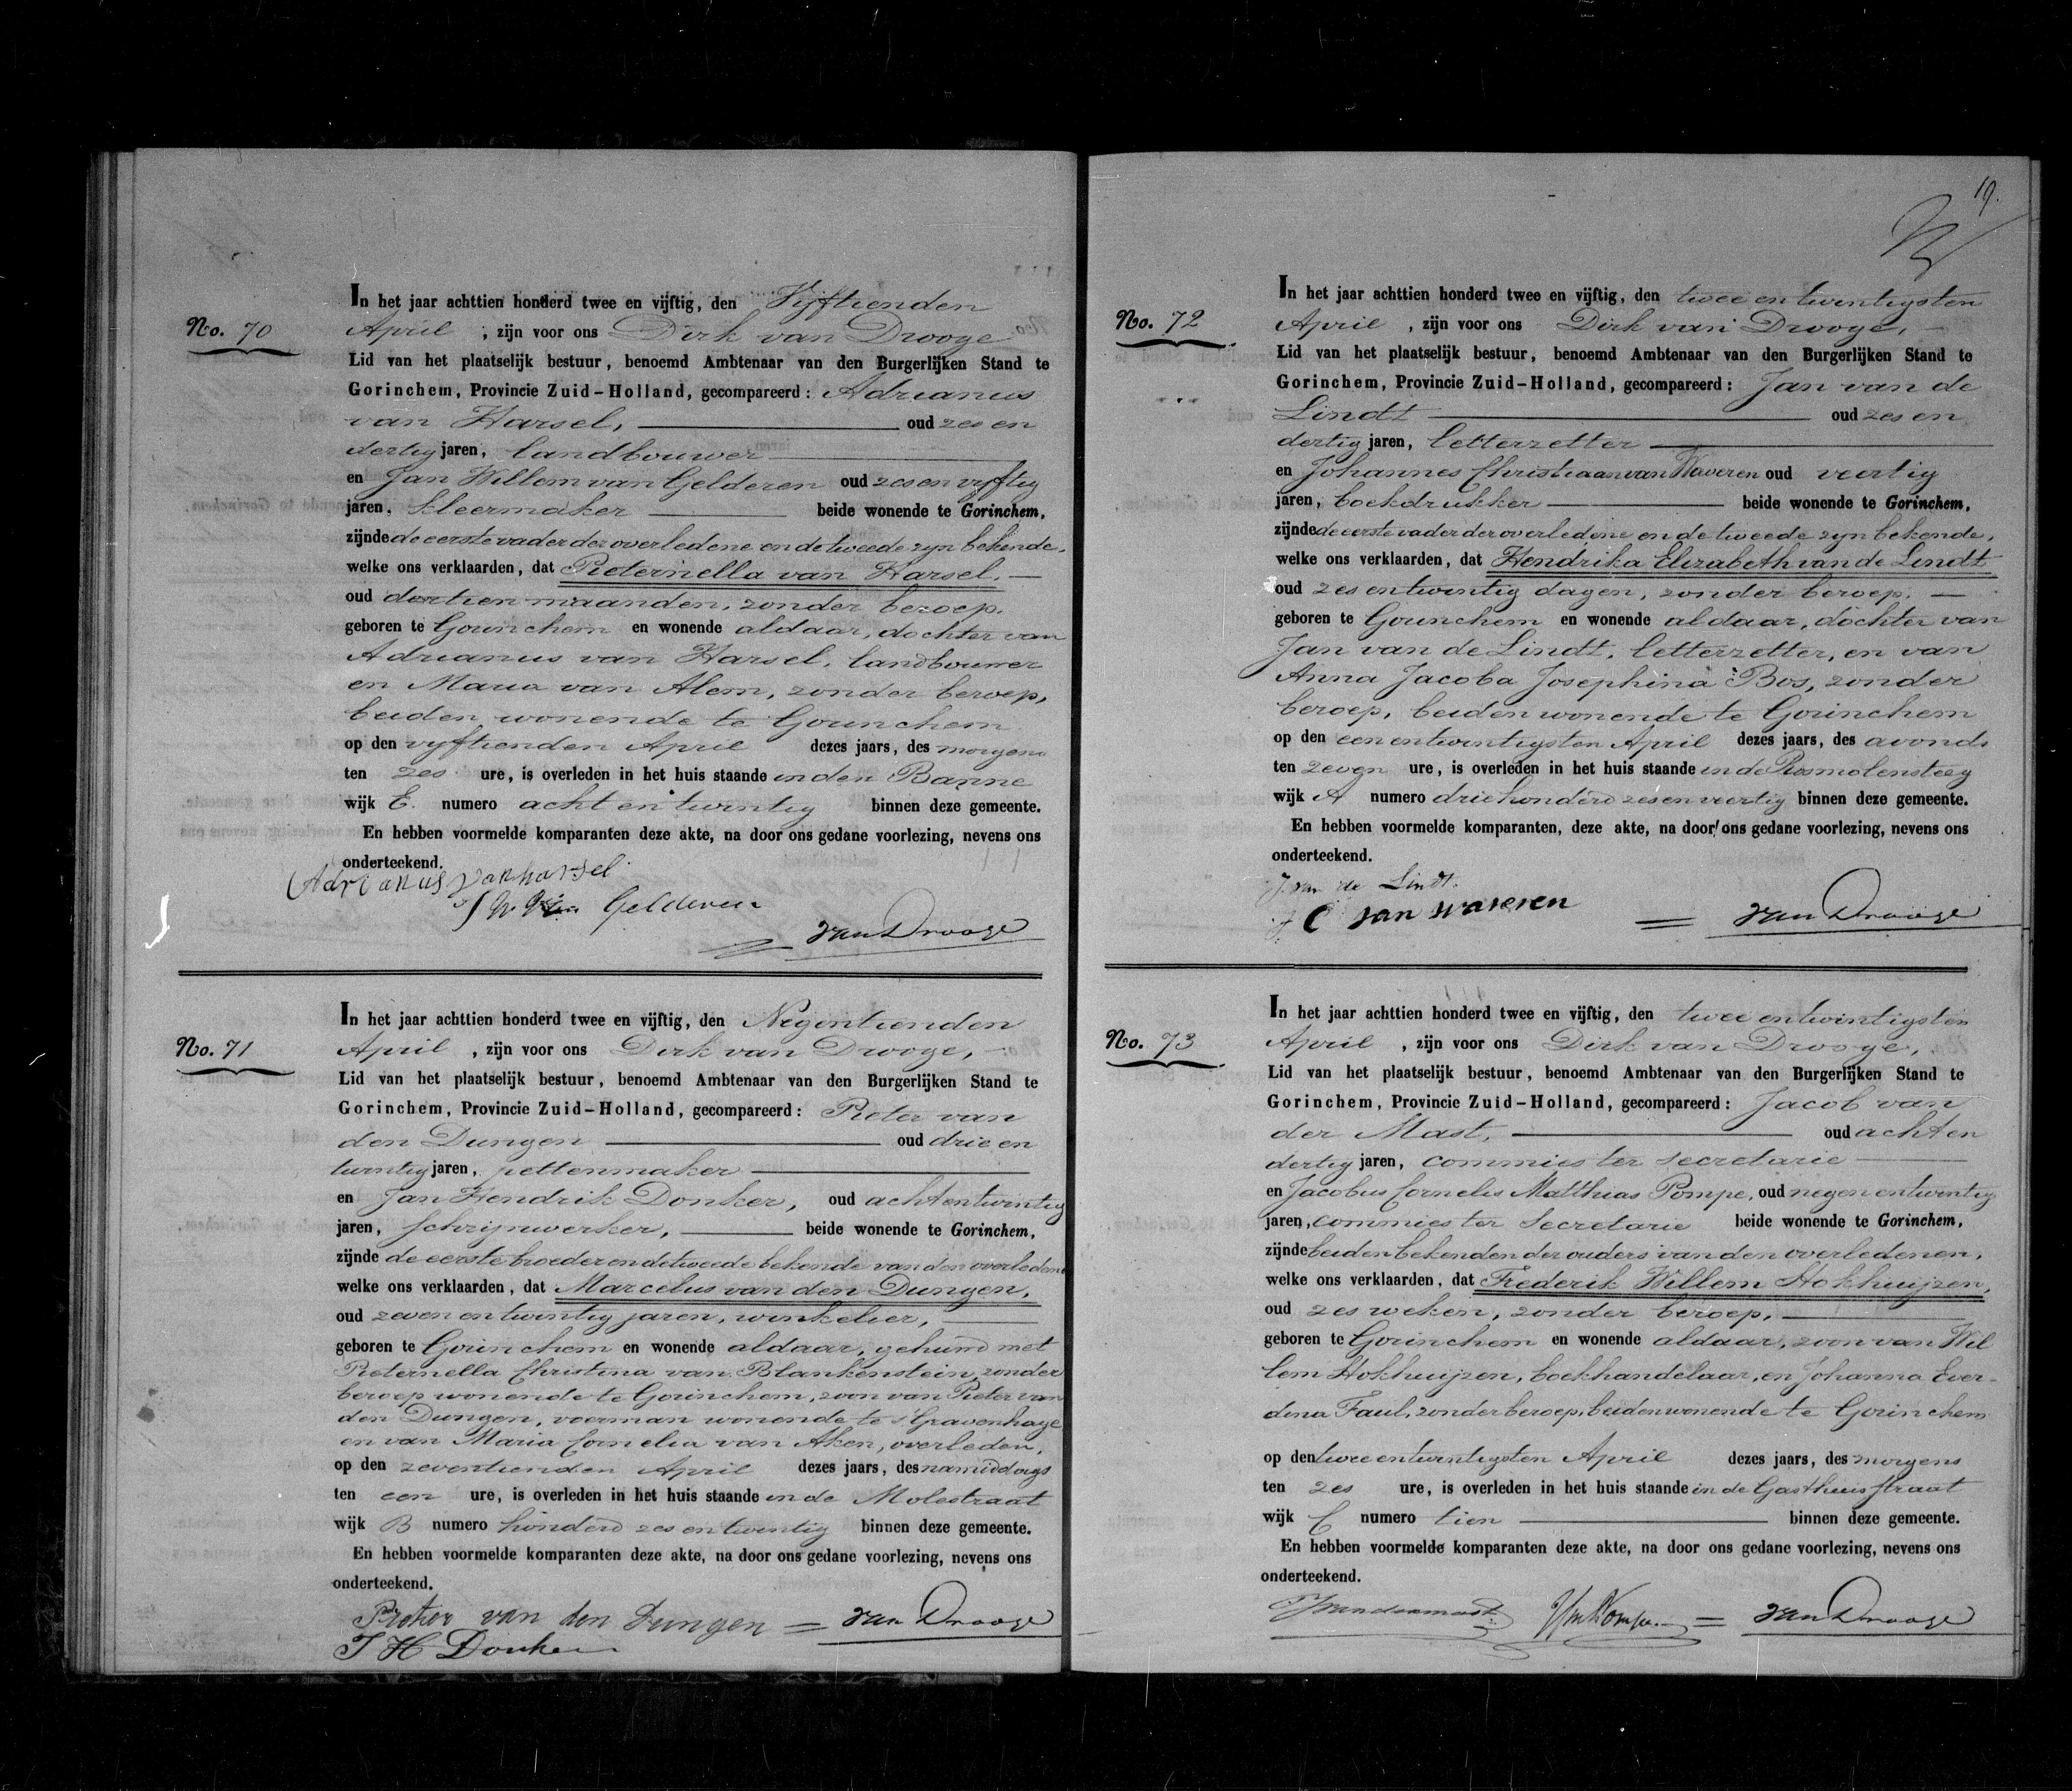 No. 70
In het jaar achttien honderd twee en vijftig, den Vijftienden
April , zijn voor ons Dirk van Drooge
Lid van het plaatselijk bestuur, benoemd Ambtenaar van den Burgerlijken Stand te
Gorinchem, Provincie Zuid-Holland, gecompareerd: Adrianus
van Harsel, oud zes en
dertig jaren, landbouwer
en Jan Willem van Gelderen oud zes en vyftig
jaren, kleermaker beide wonende te Gorinchem,
zijnde de eerste vader der overledene en de tweede zyn bekende,
welke ons verklaarden, dat Pieternella van Harsel,
oud dertien maanden, zonder beroep,
geboren te Gorinchem en wonende aldaar, dochter van
Adrianus van Harsel, landbouwer
en Maria van Alem, zonder beroep,
beiden wonende te Gorinchem
op den vyftienden April dezes jaars, des morgens
ten zes ure, is overleden in het huis staande in den Banne
wijk E. numero acht en twintig binnen deze gemeente.
En hebben voormelde komparanten deze akte, na door ons gedane voorlezing, nevens ons
onderteekend.
Adrianus vanharsel
Gelderen
van Drooge
No. 71
In het jaar achttien honderd twee en vijftig, den Negentienden
April , zijn voor ons Dirk van Drooge,
Lid van het plaatselijk bestuur, benoemd Ambtenaar van den Burgerlijken Stand te
Gorinchem, Provincie Zuid-Holland, gecompareerd: Pieter van
den Dungen oud drie en
twintig jaren, pettenmaker
en Jan Hendrik Donker, oud acht en twintig
jaren, schrijnwerker, beide wonende te Gorinchem,
zijnde de eerste broeder en de tweede bekende van den overledene
welke ons verklaarden, dat Marcelus van den Dungen,
oud zeven en twintig jaren, winkelier,
geboren te Gorinchem en wonende aldaar, gehuwd met
Pieternella Christina van Blankenstein, zonder
beroep wonende te Gorinchem, zoon van Pieter van
den Dungen, voerman wonende te 's Gravenhage
en van Maria Cornelia van Aken, overleden,
op den zeventienden April dezes jaars, des namiddags
ten een ure, is overleden in het huis staande in de Molestraat
wijk B numero honderd zes en twintig binnen deze gemeente.
En hebben voormelde komparanten deze akte, na door ons gedane voorlezing, nevens ons
onderteekend.
Pieter van den Dungen van Drooge
J H Donker
19.
No. 72
In het jaar achttien honderd twee en vijftig, den twee en twintigsten
April , zijn voor ons Dirk van Drooge,
Lid van het plaatselijk bestuur, benoemd Ambtenaar van den Burgerlijken Stand te
Gorinchem, Provincie Zuid-Holland, gecompareerd: Jan van de
Lindt oud zes en
dertig jaren, letterzetter
en Johannes Christiaan van Waveren oud veertig
jaren, boekdrukker beide wonende te Gorinchem,
zijnde de eerste vader der overledene en de tweede zyn bekende,
welke ons verklaarden, dat Hendrika Elizabeth van de Lindt
oud zes en twintig dagen, zonder beroep,
geboren te Gorinchem en wonende aldaar, dochter van
Jan van de Lindt, letterzetter, en van
Anna Jacoba Josephina Bos, zonder
beroep, beiden wonende te Gorinchem
op den een en twintigsten April dezes jaars, des avonds
ten zeven ure, is overleden in het huis staande in de Rosmolensteeg
wijk A numero drie honderd zes en veertig binnen deze gemeente.
En hebben voormelde komparanten, deze akte, na door ons gedane voorlezing, nevens ons
onderteekend.
J. van de Lindt.
J C van waveren van Drooge
No. 73
In het jaar achttien honderd twee en vijftig, den twee en twintigsten
April , zijn voor ons Dirk van Drooge,
Lid van het plaatselijk bestuur, benoemd Ambtenaar van den Burgerlijken Stand te
Gorinchem, Provincie Zuid-Holland, gecompareerd: Jacob van
der Mast, oud acht en
dertig jaren, commies ter secretarie
en Jacobus Cornelis Matthias Pompe, oud negen en twintig
jaren, commies ter Secretarie beide wonende te Gorinchem,
zijnde beiden bekenden der ouders van den overledenen,
welke ons verklaarden, dat Frederik Willem Hokhuijzen,
oud zes weken, zonder beroep,
geboren te Gorinchem en wonende aldaar, zoon van Wil
lem Hokhuijzen, boekhandelaar, en Johanna Ever-
dina Faul, zonder beroep, beiden wonende te Gorinchem
op den twee en twintigsten April dezes jaars, des morgens
ten zes ure, is overleden in het huis staande in de Gasthuisstraat
wijk C numero tien binnen deze gemeente.
En hebben voormelde komparanten deze akte, na door ons gedane voorlezing, nevens ons
onderteekend.
Jvandermast van Drooge